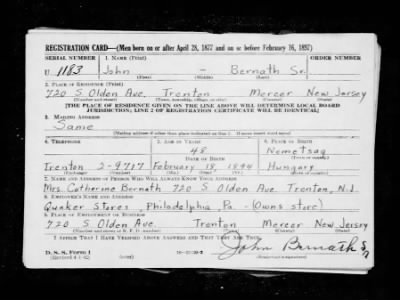 REGISTRATION CARD—(Men born on or after April 28, 1877 and on or before February 16, 1897)
SERIAL NUMBER 1. NAME (Print) ORDER NUMBER
U 1183 John - Bernath Sr.
(First) (Middle) (Last)
2. PLACE OF RESIDENCE (Print)
720 S Olden Ave. Trenton Mercer New Jersey
(Number and street) (Town, township, village, or city) (County) (State)
[THE PLACE OF RESIDENCE GIVEN ON THE LINE ABOVE WILL DETERMINE LOCAL BOARD
JURISDICTION; LINE 2 OF REGISTRATION CERTIFICATE WILL BE IDENTICAL]
3. MAILING ADDRESS
Same
[Mailing address if other than place indicated on line 2. If same insert word same]
4. TELEPHONE 5. AGE IN YEARS 6. PLACE OF BIRTH
48 Nemetsag
DATE OF BIRTH
Trenton 2-9717 February 18, 1894 Hungary
(Exchange) (Number) (Mo.) (Day) (Yr.) (State or country)
7. NAME AND ADDRESS OF PERSON WHO WILL ALWAYS KNOW YOUR ADDRESS
Mrs. Catherine Bernath 720 S Olden Ave. Trenton, N.J.
8. EMPLOYER'S NAME AND ADDRESS
Quaker Stores, Philadelphia, Pa - (Owns store)
9. PLACE OF EMPLOYMENT OR BUSINESS
720 S Olden Ave. Trenton Mercer New Jersey
(Number and street or R. F. D. number) (Town) (County) (State)
I AFFIRM THAT I HAVE VERIFIED ABOVE ANSWERS AND THAT THEY ARE TRUE.
D. S. S. Form 1
(Revised 4-1-42)
John Bernath Sr